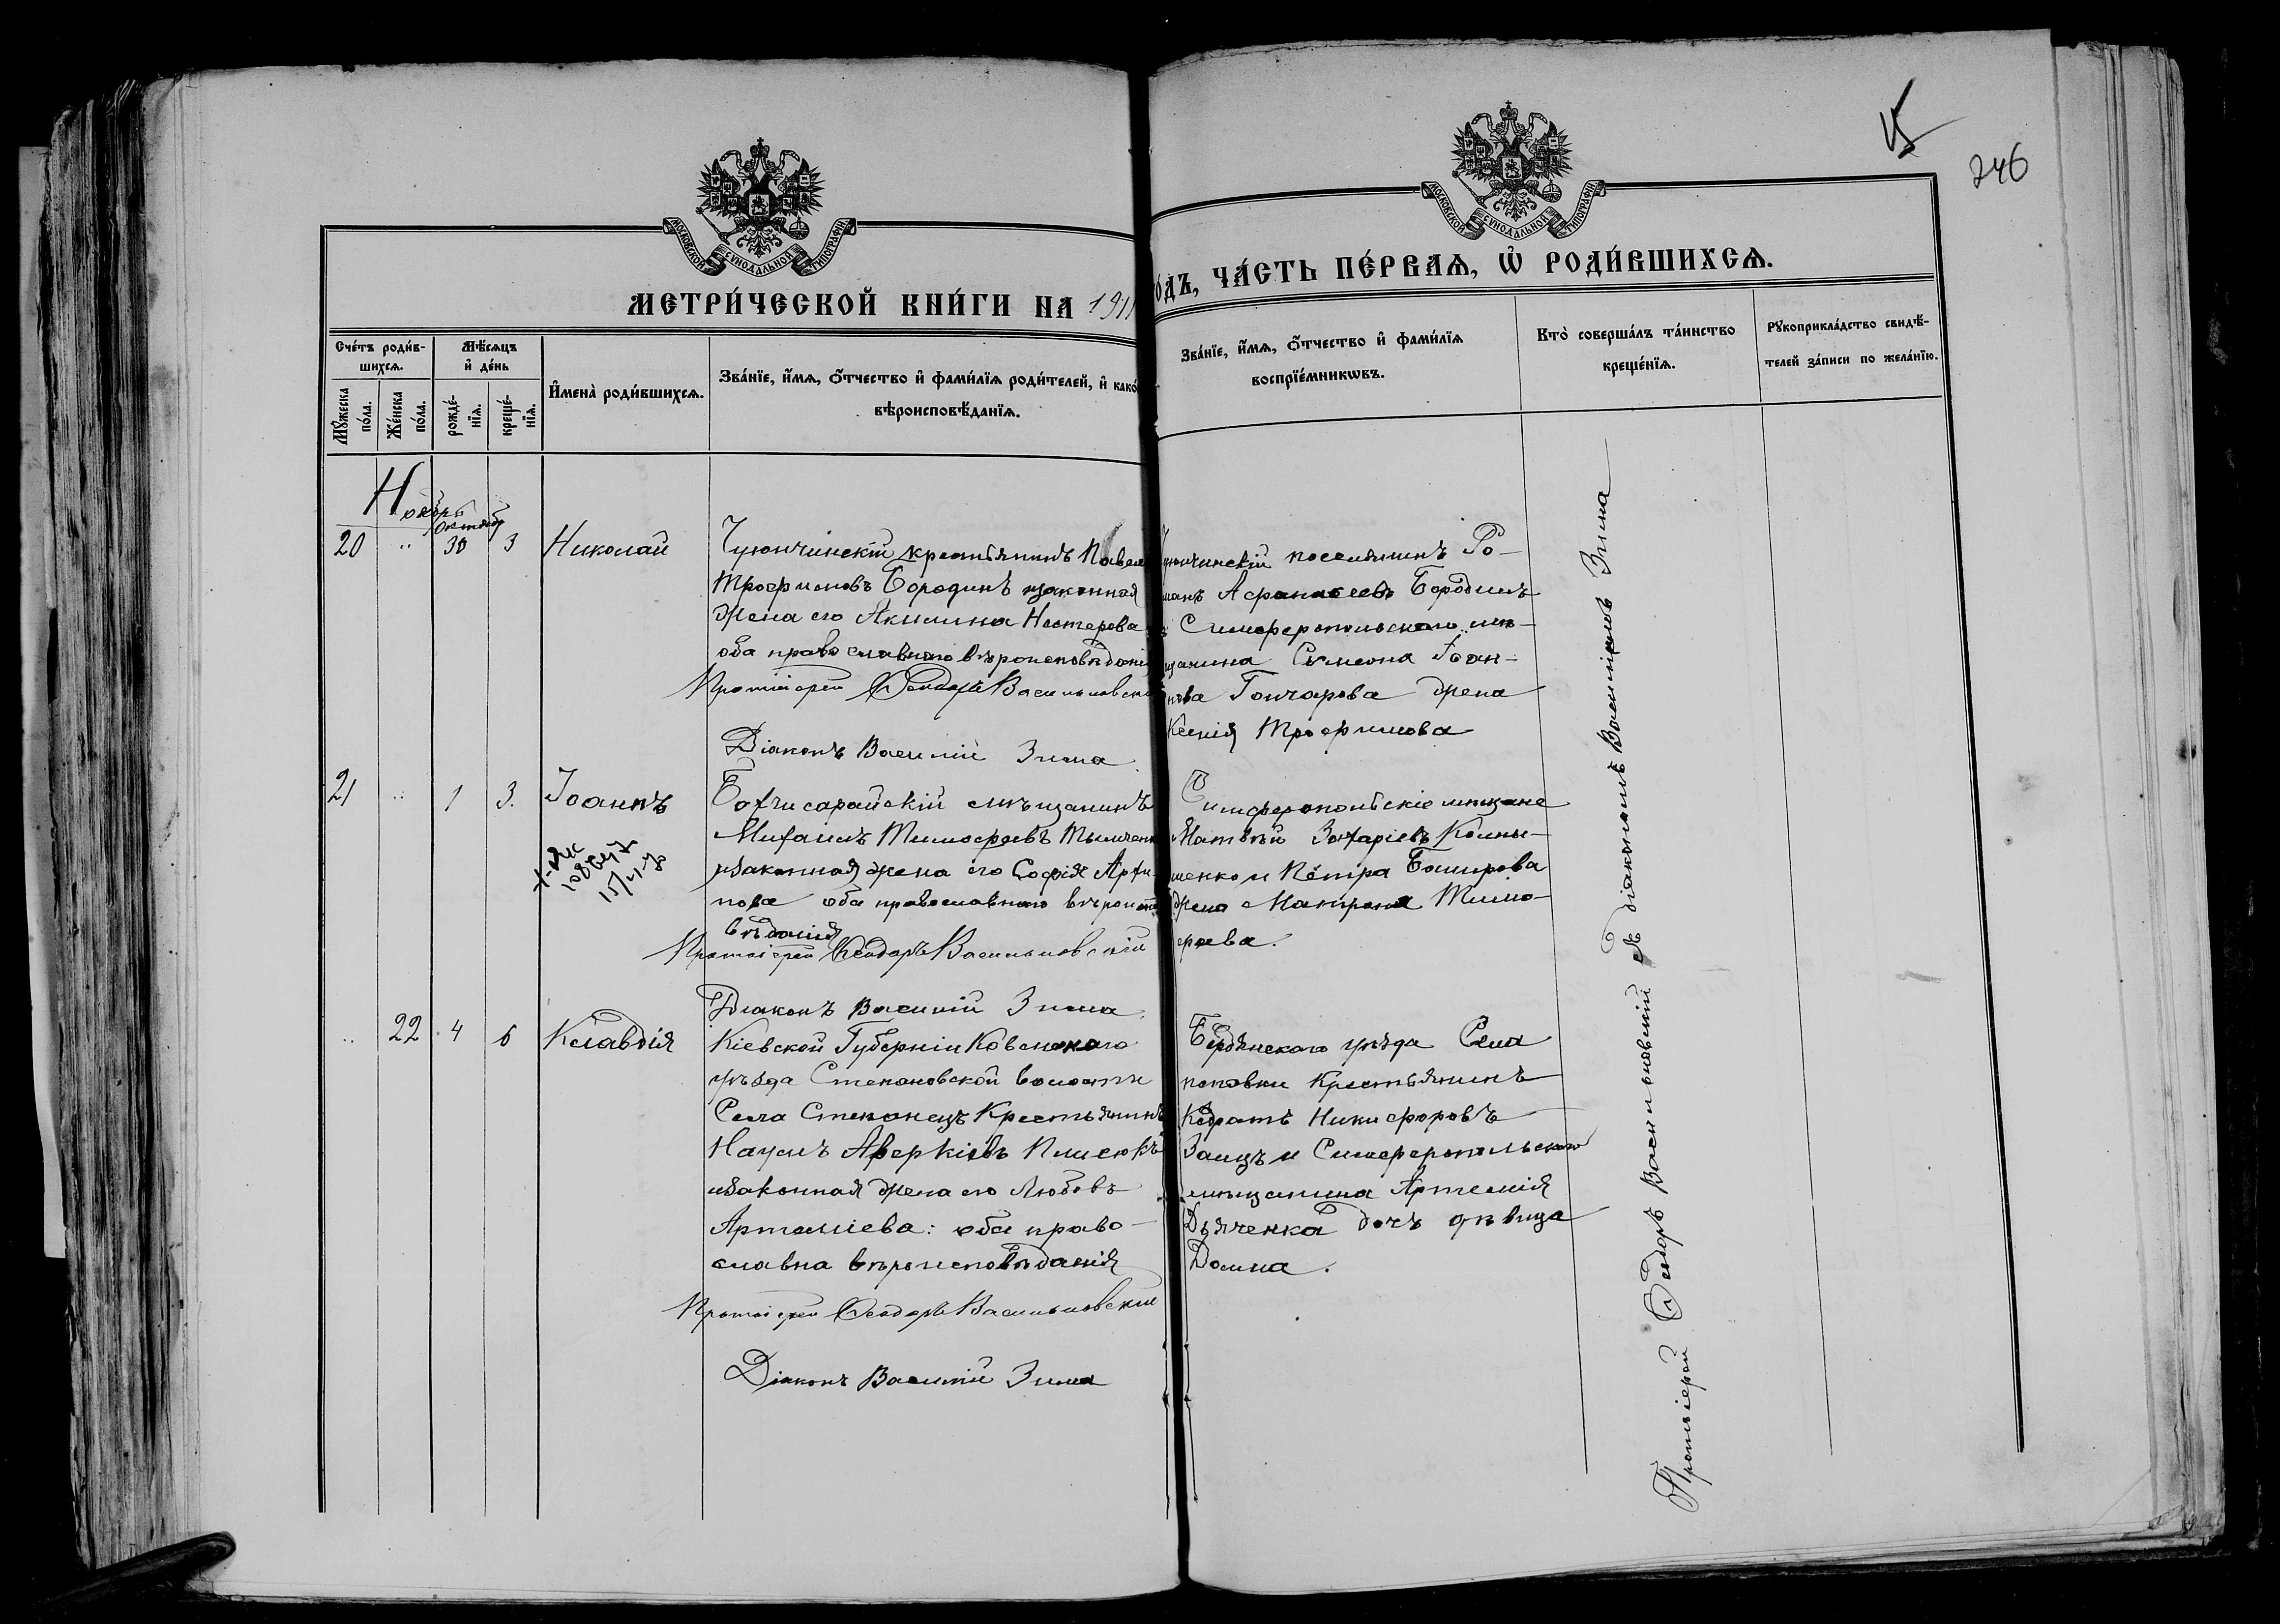 15
246
МОСКОВСКОЙ СУНОДАЛЬНОЙ ТИПОГРАФІИ
МОСКОВСКОЙ СУНОДАЛЬНОЙ ТИПОГРАФІИ
МЕТРИ́ЧЕСКОЙ КНИ́ГИ НА 1911
О́ДЪ, ЧА́СТЬ ПЕ́РВАѦ, Ѡ҆ РОДИ́ВШИХСѦ.
Сче́тъ роди́в-
шихсѧ.
Мꙋ́жеска по́ла.
Же́нска по́ла.
Мѣ́сѧцъ
и҆ де́нь
рожде́-
нїѧ.
креще́-
нїѧ.
И҆мена̀ роди́вшихсѧ.
Зва́нїе, и҆́мѧ, ѻ҆́тчество и҆ фами́лїѧ роди́телей, и҆ како́
вѣроисповѣ́данїѧ.
Зва́нїе, и҆́мѧ, ѻ҆́тчество и҆ фами́лїѧ
воспрїе́мникѡвъ.
Кто̀ соверша́лъ та́инство
креще́нїѧ.
Рꙋкоприкла́дство свидѣ́-
телей за́писи по жела́нїю.
Ноябрь
Октябр
20 " 30 3 Николай
Чуюнчинскій крестьянинъ Павел
Трофимовъ Бородинъ изаконная
жена его Акилина Нестерова
оба православнаго вѣроисповѣданія
Протоіерей Ѳеодоръ Васильковскій
Діаконъ Василій Зима
юнчинскій поселянинъ Ро-
манъ Афанасеевъ Бородинъ
Симферопольскаго мѣ-
щанина Сѵмеона Іоан-
нова Гончарова жена
Ксенія Трофимова
21 " 1 3. Іоаннъ
15/4
Бахчисарайскій мѣщанинъ
Михаилъ Тимофеевъ Тымченк
изаконная жена его Софія Архи-
пова оба православнаго вѣроиспо
вѣданія
Протоіерей Ѳеодоръ Васильковскій
Діаконъ Василій Зима
Симферопольскіе мѣщане
Матвѣй Захаріевъ Колны-
шенко и Петра Баширова
жена Матрона Тимо-
феева.
" 22 4 6 Клавдія
Кіевской Губерніи Ковенскаго
уѣзда Степановской волости
Села Степанецъ Крестьянинъ
Наумъ Аверкіевъ Плисюкъ
изаконная жена его Любовъ
Арталіева: оба право-
славна вѣроисповѣданія
Протоіерей Ѳеодоръ Васильковскій
Діаконъ Василій Зима
Бердянскаго уѣзда Села
поповки Крестьянинъ
Кодратъ Никифоровъ
Заицъ и Симферопольскаго
мѣщанина Артемія
Дяченка дочь дѣвица
Домна.
Протоіерей Ѳеодоръ Васильковскій съ діакономъ Василіемъ Зима